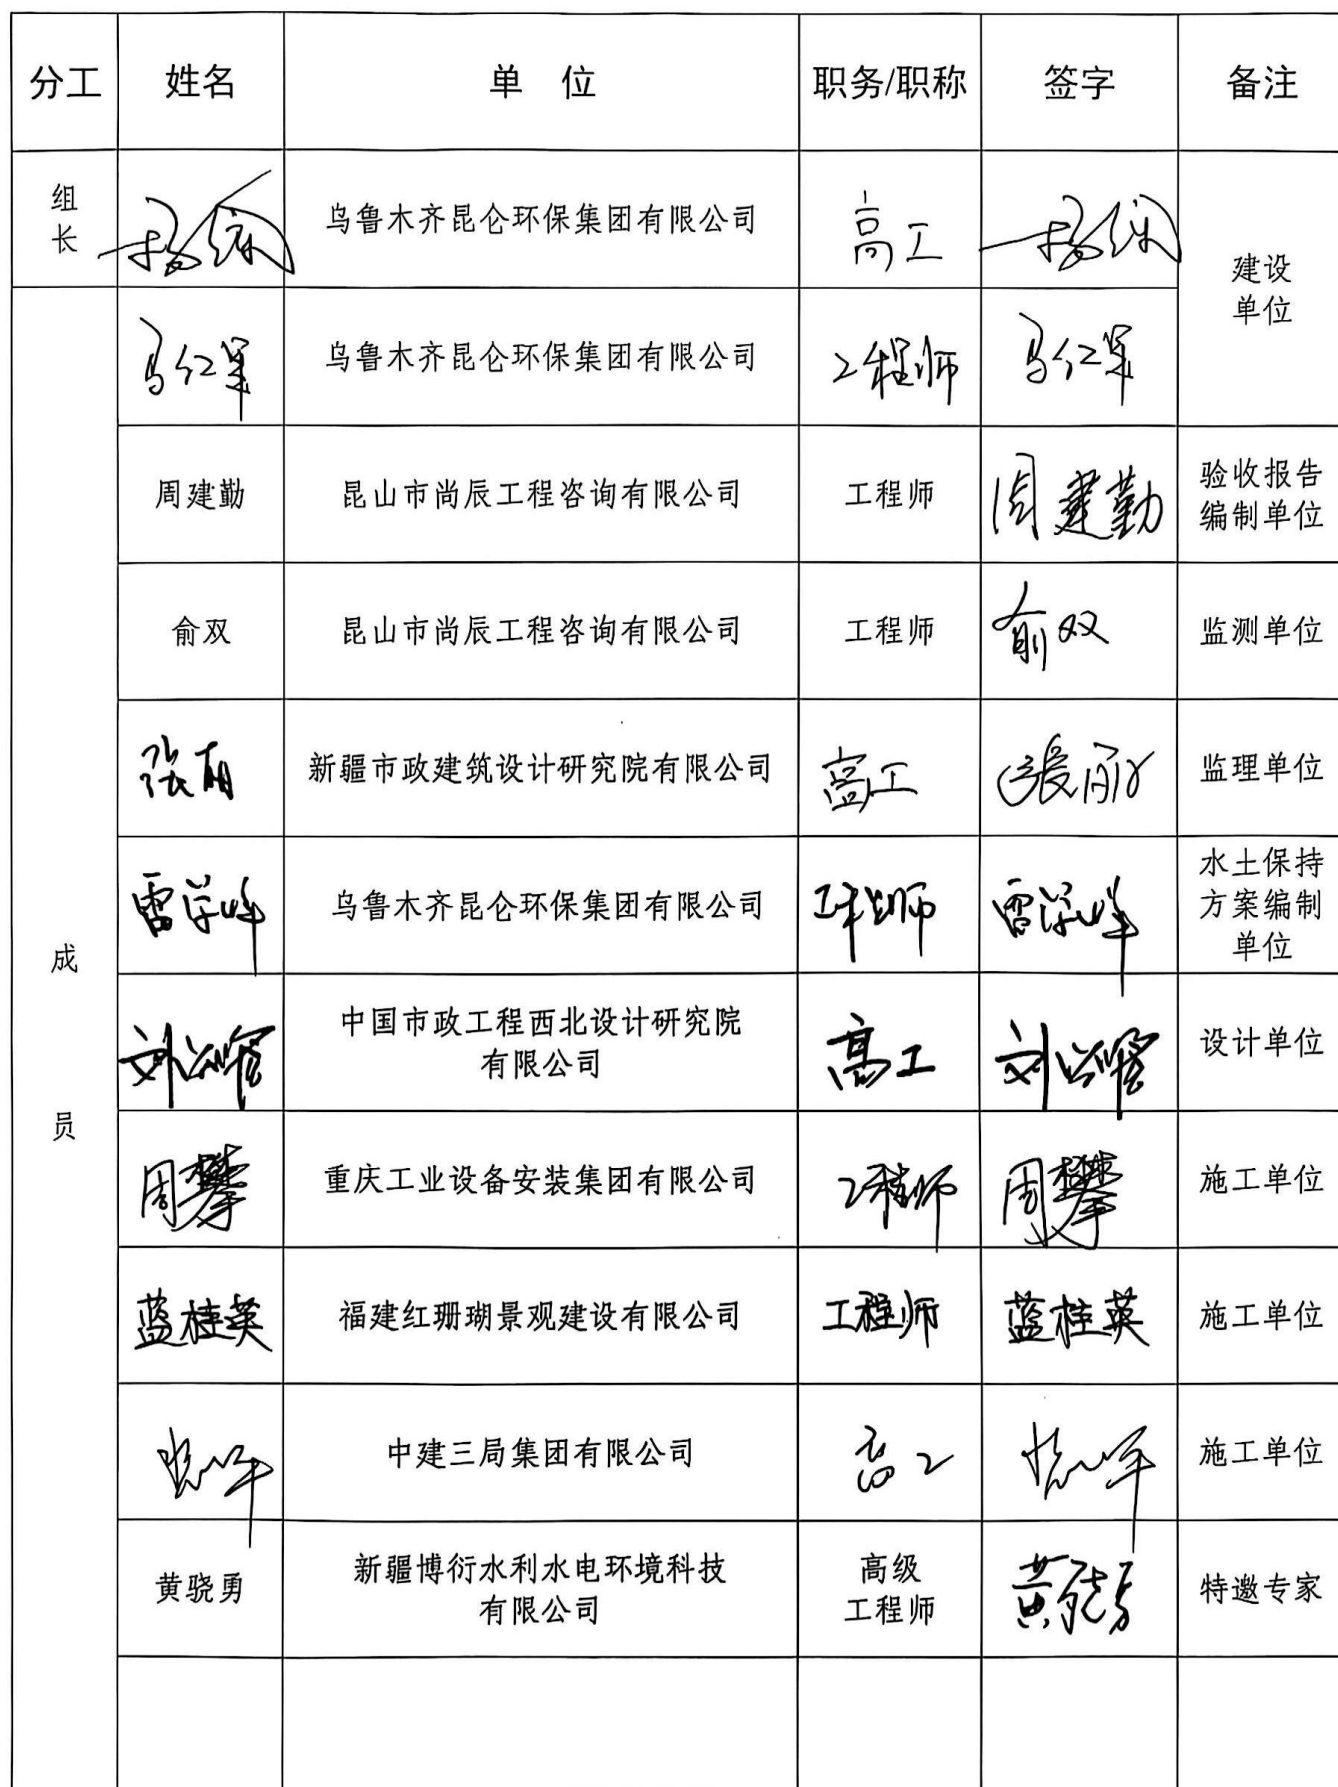 分工 姓名 单 位 职务/职称 签字 备注
组
长
乌鲁木齐昆仑环保集团有限公司 高工
建设
单位
马仁军 乌鲁木齐昆仑环保集团有限公司 工程师 马仁军
周建勤 昆山市尚辰工程咨询有限公司 工程师 周建勤
验收报告
编制单位
俞双 昆山市尚辰工程咨询有限公司 工程师 俞双 监测单位
新疆市政建筑设计研究院有限公司 高工 监理单位
雷学峰 乌鲁木齐昆仑环保集团有限公司 工程师 雷学峰
水土保持
方案编制
单位
成
员
中国市政工程西北设计研究院
有限公司
高工 设计单位
周攀 重庆工业设备安装集团有限公司 工程师 周攀 施工单位
蓝桂英 福建红珊瑚景观建设有限公司 工程师 蓝桂英 施工单位
中建三局集团有限公司 高工 施工单位
黄骁勇
新疆博衍水利水电环境科技
有限公司
高级
工程师
黄骁勇 特邀专家